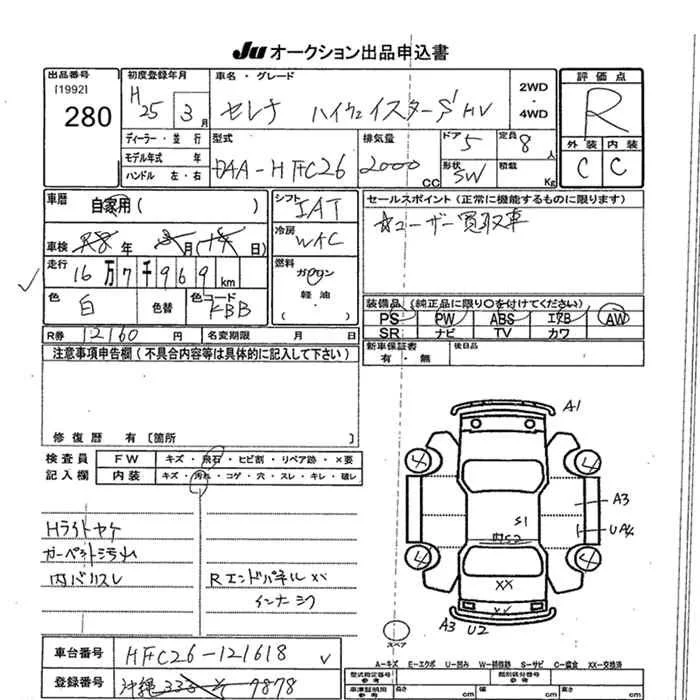 Ju オークション出品申込書
出品番号
[1992]
280
初度登録年月
H25 3月
車名・グレード
セレナ ハイウェイスターS HV
2WD
・
4WD
評価点
R
外装 内装
C C
ディーラー・並行
モデル年式 年
ハンドル 左・右
型式
DAA-HFC26
排気量
2000 CC
ドア 5
形状 SW
定員 8人
積載 Kg
車歴
自家用( )
シフト
IAT
セールスポイント(正常に機能するものに限ります)
☆ユーザー買取車
車検 R8年 3月(14日)
冷房
WAC
走行 16万7千969km
燃料
ガソリン
軽油・
( )
色 白 色替 色コード FBB
装備品(純正品に限り○を付けてください)
PS PW ABS エアB AW
SR ナビ TV カワ
R券 12160円 名変期限 月 日
新車保証書 有・無 後日品
注意事項申告欄(不具合内容等は具体的に記入して下さい)
修復歴 有 〔箇所 〕
検査員
記入欄
FW キズ・飛石・ヒビ割・リペア跡・×要
内装 キズ・汚れ・コゲ・穴・スレ・キレ・破レ
A1
4 4
A3
S1
UA4
4 4
XX
A3 U2
スペア
Hライトヤケ
カーペット汚れ
内バリスレ
Rエンドパネル XX
インナーシワ
A-キズ E-エクボ U-凹み W-補修跡 S-サビ C-腐食 XX-交換済
車台番号 HFC26-121618
登録番号 沖縄 9878
型式指定番号
参考
類別区分番号
参考
車庫証明用
参考
長さ cm
幅 cm
高さ cm